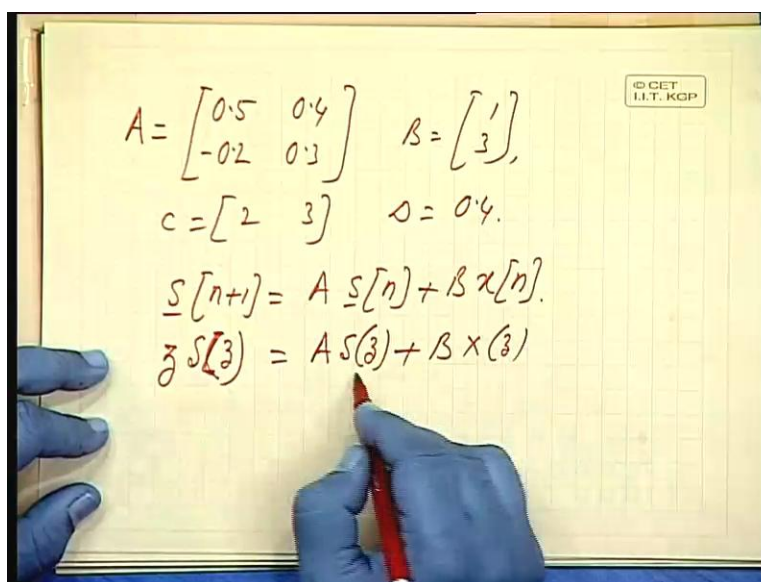 © CET
I.I.T. KGP
A = [0.5 0.4
-0.2 0.3] B = [1
3],
C = [2 3] D = 0.4.
S[n+1] = A S[n] + B x[n].
z S(z) = A S(z) + B X(z)